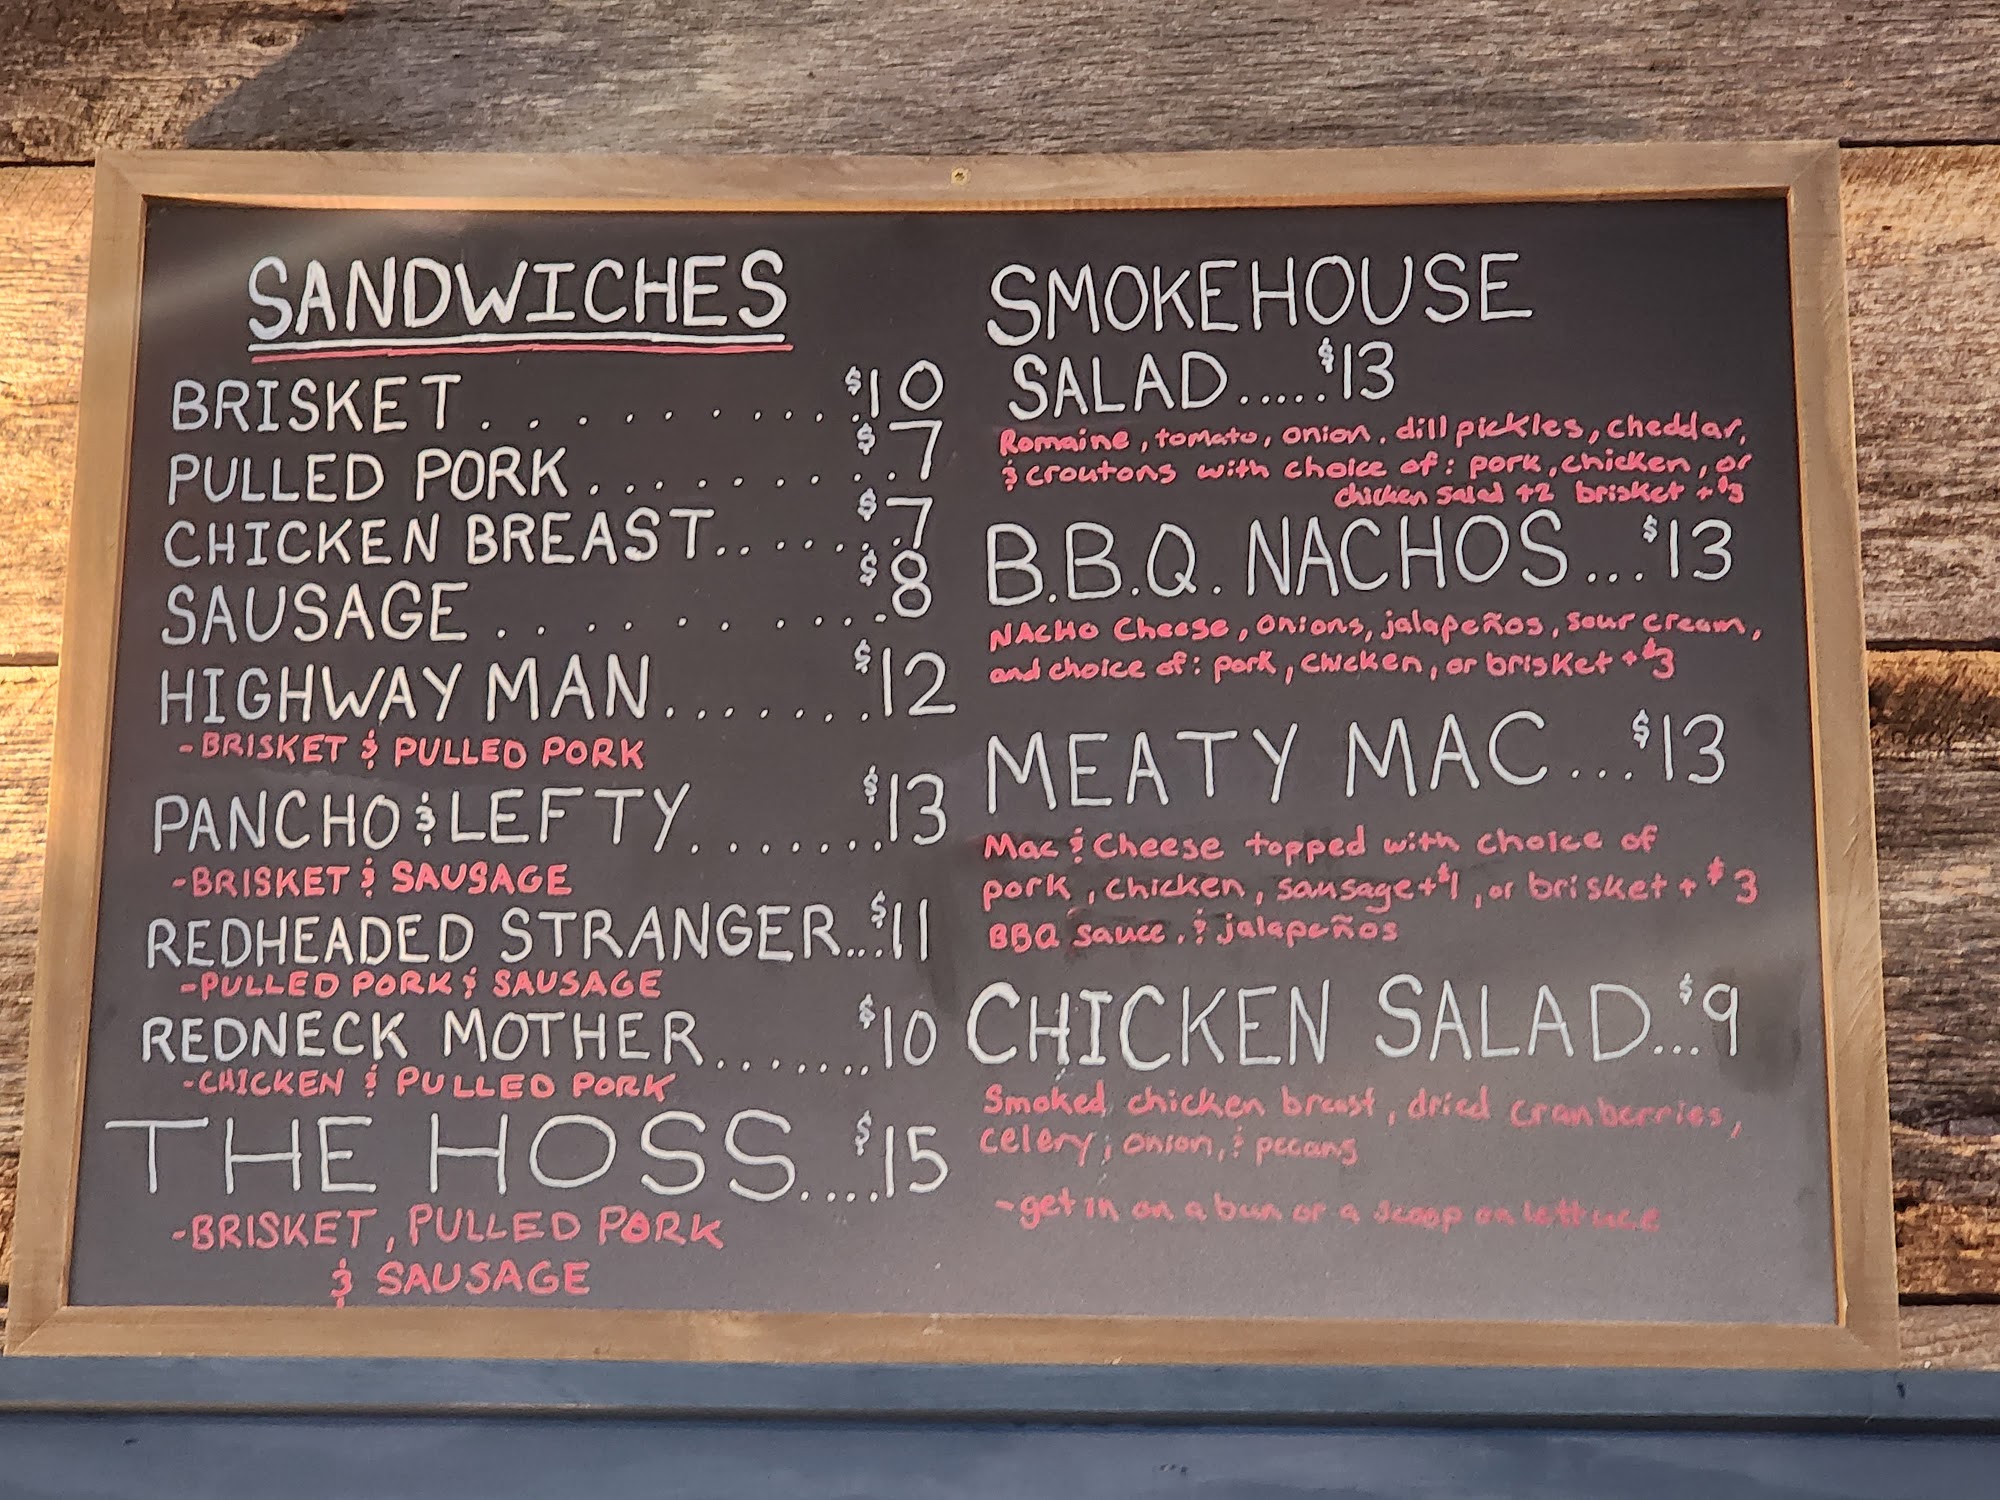 SANDWICHES
BRISKET.........$10
PULLED PORK........$7
CHICKEN BREAST......$7
SAUSAGE.........$8
HIGHWAY MAN.......$12
-BRISKET & PULLED PORK
PANCHO & LEFTY.......$13
-BRISKET & SAUSAGE
REDHEADED STRANGER...$11
-PULLED PORK & SAUSAGE
REDNECK MOTHER.......$10
-CHICKEN & PULLED PORK
THE HOSS....$15
-BRISKET, PULLED PORK
& SAUSAGE
SMOKEHOUSE
SALAD.....$13
Romaine, tomato, onion, dill pickles, cheddar,
& croutons with choice of: pork, chicken, or
chicken salad +2 brisket +$3
B.B.Q. NACHOS...$13
NACHO Cheese, onions, jalapeños, sour cream,
and choice of: pork, chicken, or brisket +$3
MEATY MAC...$13
Mac & Cheese topped with choice of
pork, chicken, sausage+$1, or brisket +$3
BBQ sauce, & jalapeños
CHICKEN SALAD...$9
Smoked chicken breast, dried cranberries,
celery, onion, & pecans
-get in on a bun or a scoop on lettuce